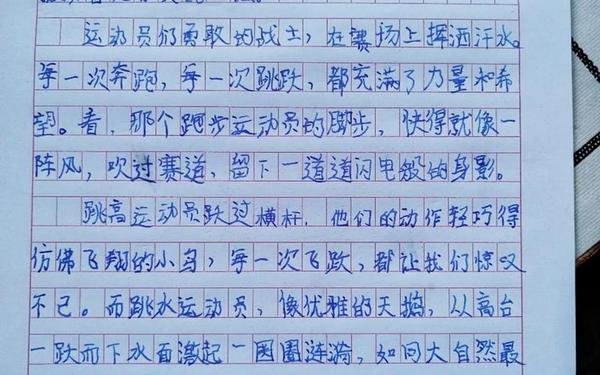 运动员们勇敢的战士，在赛场上挥洒汗水。
每一次奔跑，每一次跳跃，都充满了力量和希
望。看，那个跑步运动员的脚步，快得就像一
阵风，吹过赛道，留下一道道闪电般的身影。
跳高运动员跃过横杆，他们的动作轻巧得
仿佛飞翔的小鸟，每一次飞跃，都让我们惊叹
不已。而跳水运动员，像优雅的天鹅，从高台
一跃而下水面激起一圈圈涟漪，如同大自然最